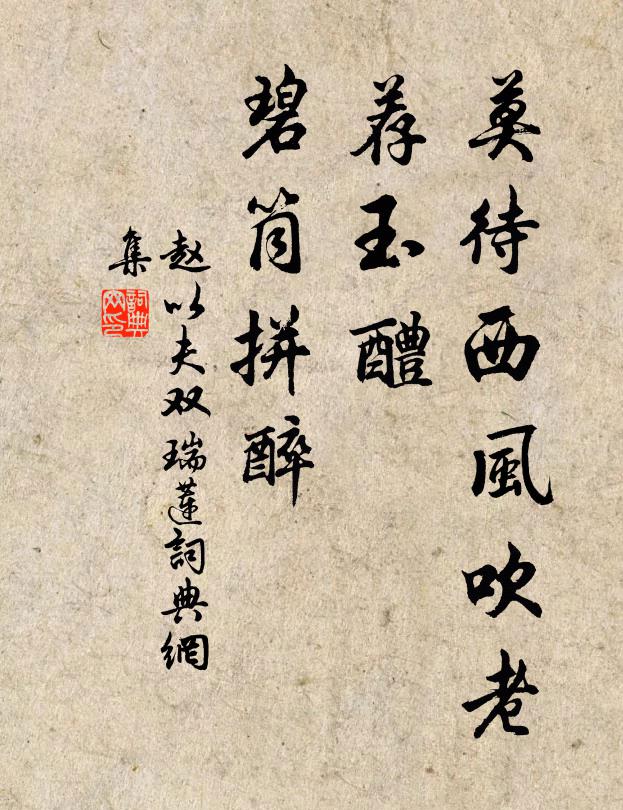 莫待西風吹老
荐玉醴
碧筒拼醉
赵以夫双瑞蓮詞典網
集
詞典网印